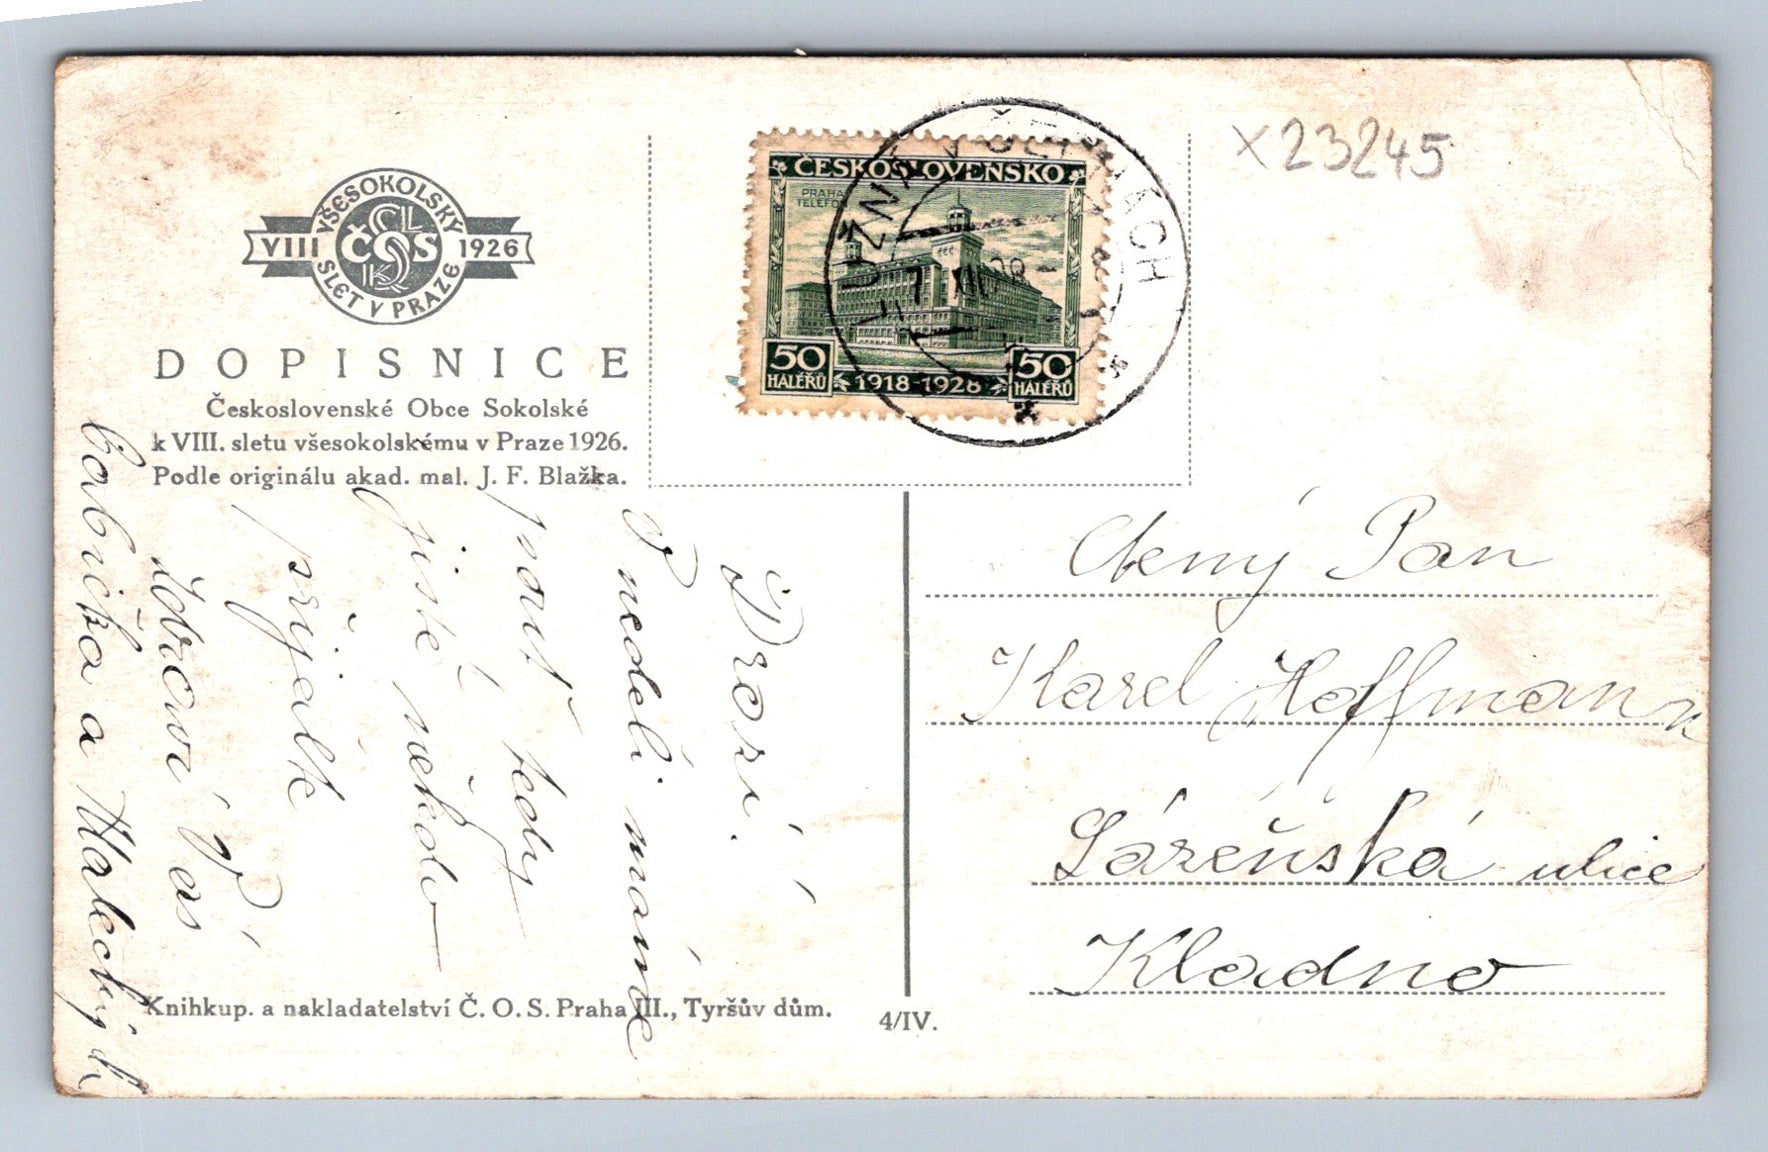 VŠESOKOLSKÝ
VIII ČOS 1926
SLET V PRAZE
DOPISNICE
Československé Obce Sokolské
k VIII. sletu všesokolskému v Praze 1926.
Podle originálu akad. mal. J. F. Blažka.
ČESKOSLOVENSKO
PRAHA
TELEFON
50 HALÉŘŮ
1918-1928
50 HALÉŘŮ
X23245
Drazí.
V neděli máme
pouť tedy
jistě někdo
přijeďte
Zdraví Vás
babička a Maleckých
Ctěný Pan
Karel Hoffmann
Lázeňská ulice
Kladno
Knihkup. a nakladatelství Č. O. S. Praha III., Tyršův dům.
4/IV.